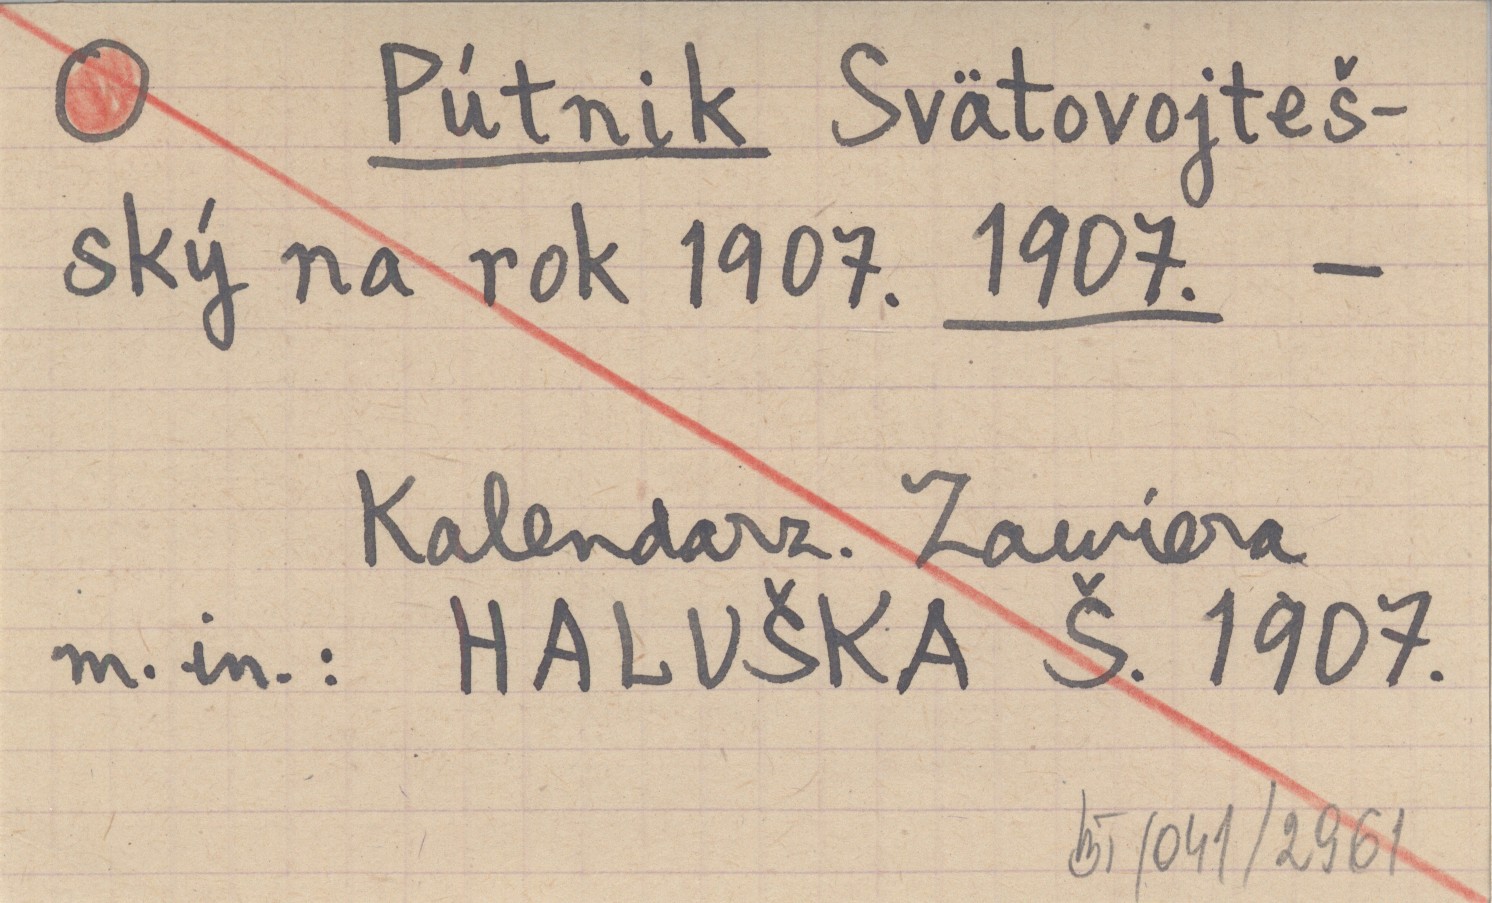 Pútnik Svätovojteš-
ský na rok 1907. 1907. —
Kalendarz. Zawiera
m. in.: HALUŠKA Š. 1907.
/041/2961